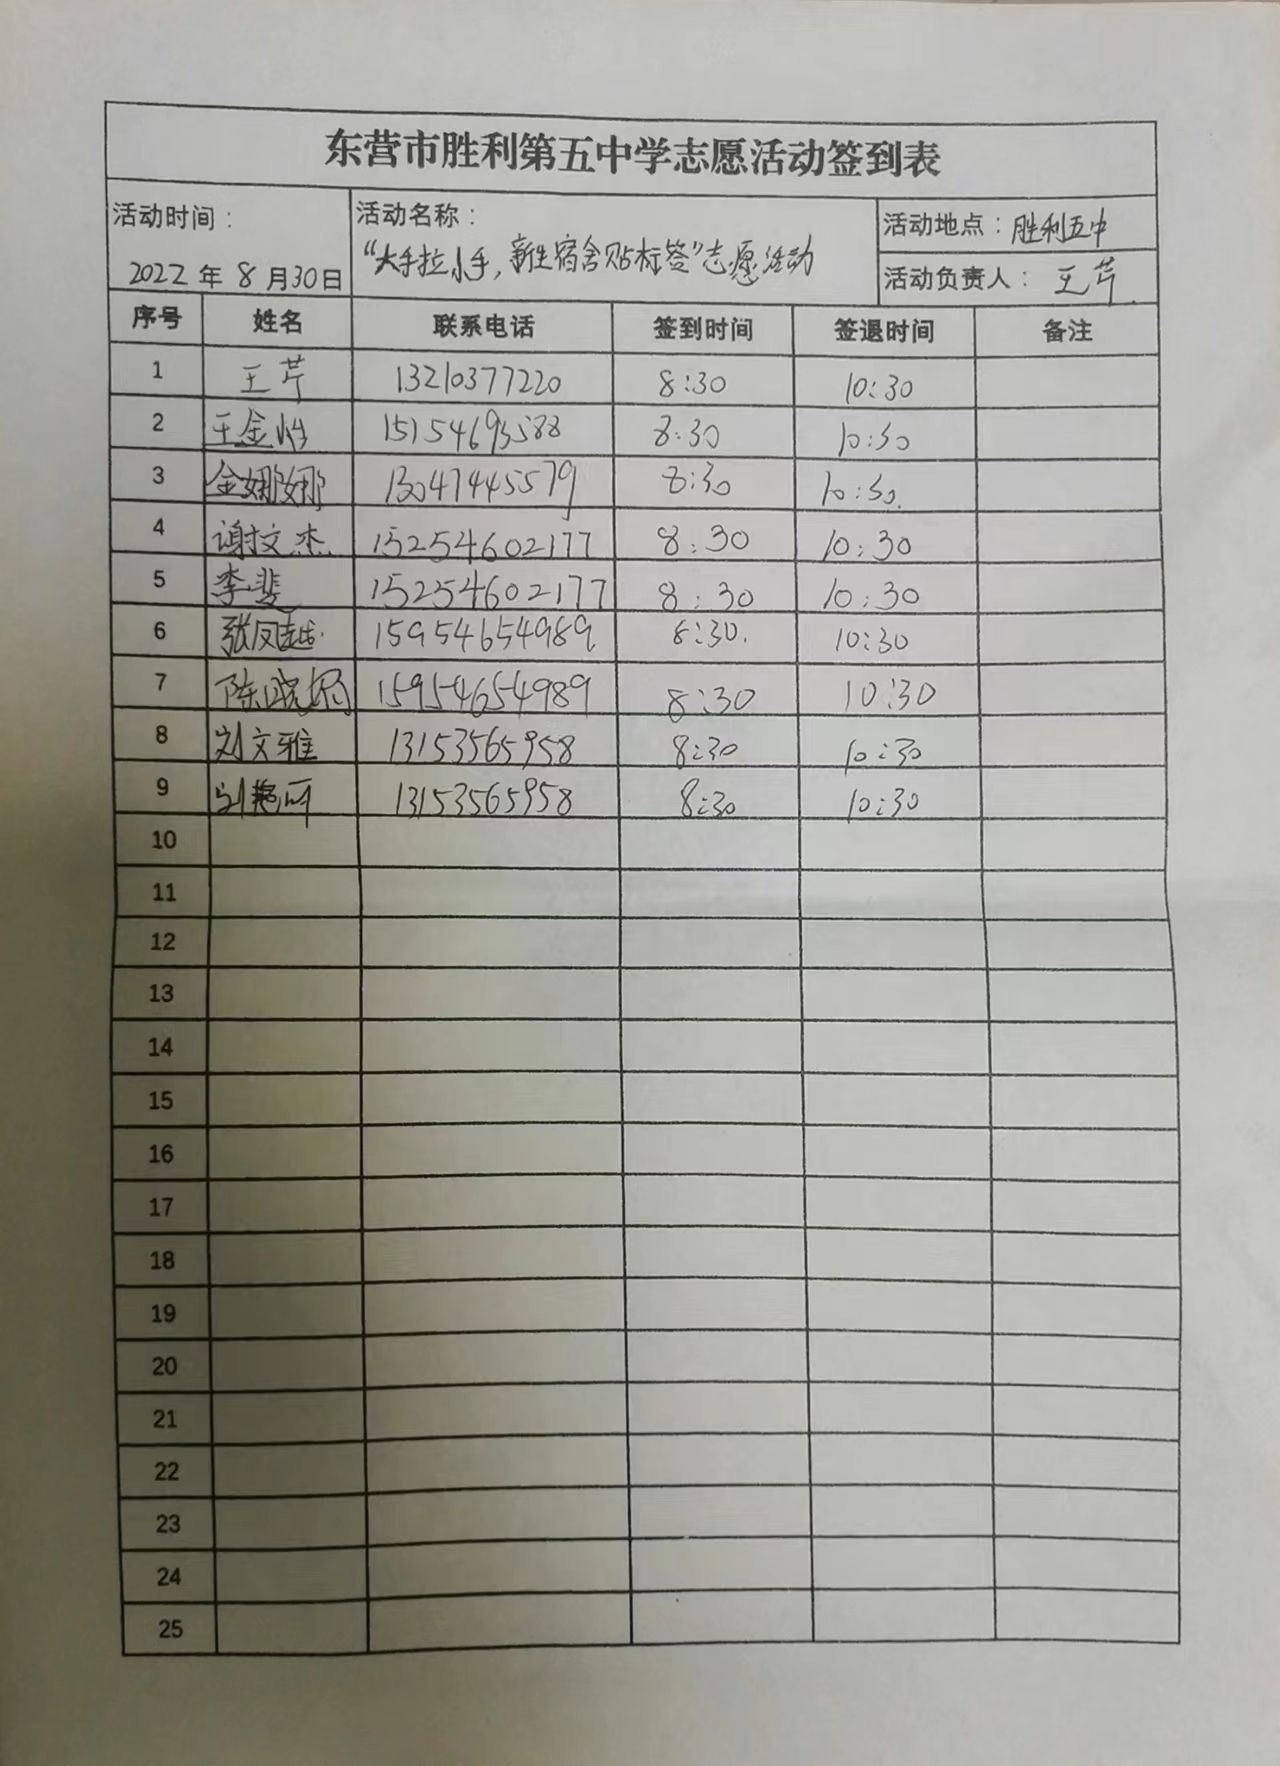 东营市胜利第五中学志愿活动签到表
活动时间：
2022 年 8 月 30 日
活动名称：
“大手拉小手，新生宿舍贴标签”志愿活动
活动地点：胜利五中
活动负责人：王芹
序号 姓名 联系电话 签到时间 签退时间 备注
1 王芹 13210377220 8:30 10:30
2 王金怡 15154693588 8:30 10:30
3 金娜娜 13047445579 8:30 10:30
4 谢文杰 15254602177 8:30 10:30
5 李斐 15254602177 8:30 10:30
6 张凤越 15954654989 8:30 10:30
7 陈晓娟 15954654989 8:30 10:30
8 刘文雅 13153565958 8:30 10:30
9 刘艳 13153565958 8:30 10:30
10
11
12
13
14
15
16
17
18
19
20
21
22
23
24
25